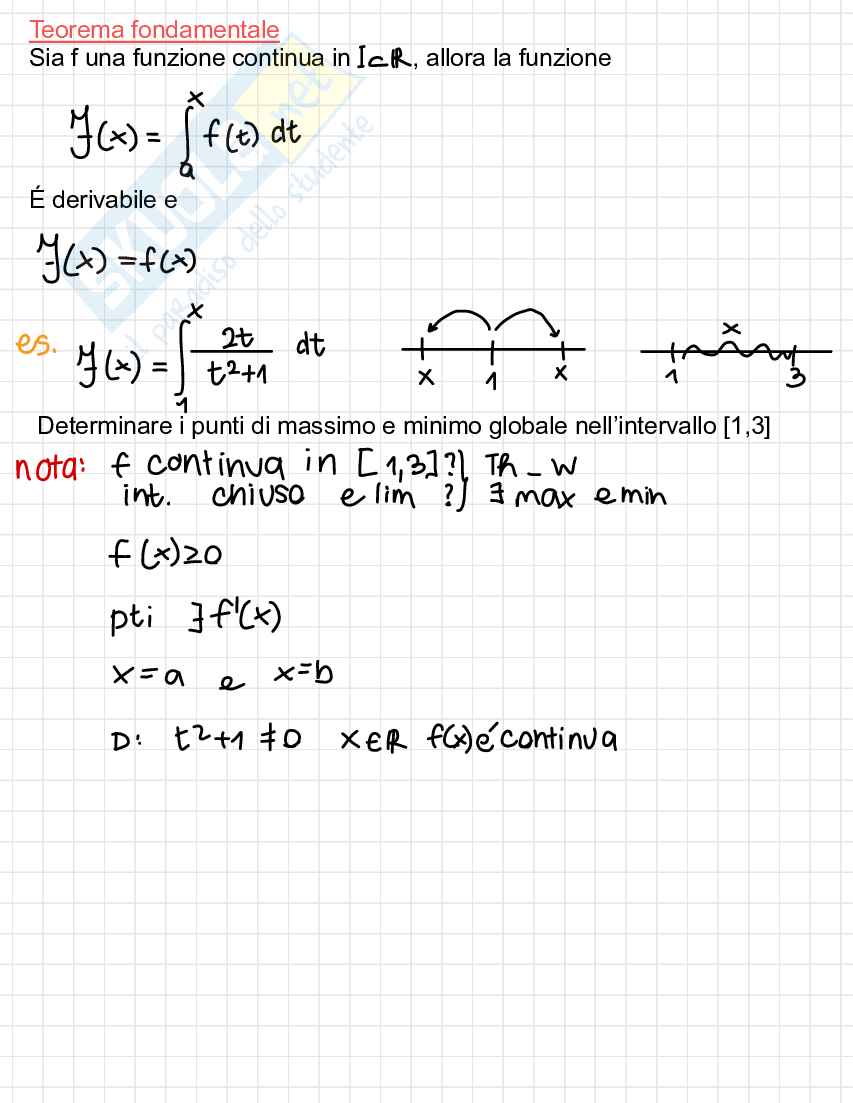 Teorema fondamentale
Sia f una funzione continua in I⊂R, allora la funzione
F(x) = ∫ₐˣ f(t) dt
É derivabile e
F(x) = f(x)
es. F(x) = ∫₁ˣ 2t/(t²+1) dt
x 1 x
1 x 3
Determinare i punti di massimo e minimo globale nell'intervallo [1,3]
nota: f continua in [1,3]?] Th_W
int. chiuso e lim ?] ∃ max e min
f(x)≥0
pti ∃f'(x)
x=a e x=b
D: t²+1≠0 x∈R f(x) é continua
SKUOLA.net
il paradiso dello studente